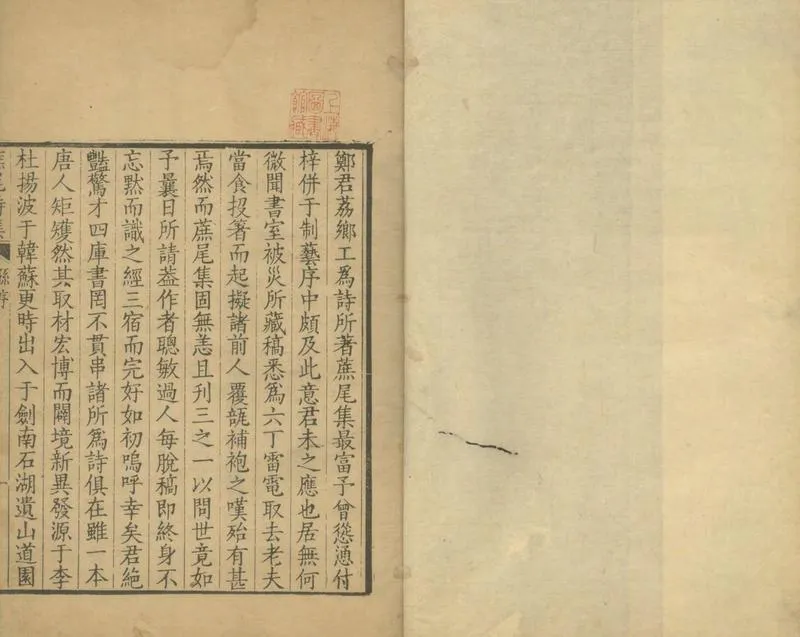 上海圖書館藏
鄭君荔鄉工爲詩所著蔗尾集最富予曾慫慂付
梓併于制藝序中頗及此意君未之應也居無何
微聞書室被災所藏稿悉爲六丁雷電取去老夫
當食投箸而起擬諸前人覆瓿補袍之嘆殆有甚
焉然而蔗尾集固無恙且刊三之一以問世竟如
予曩日所請葢作者聰敏過人每脫稿即終身不
忘黙而識之經三宿而完好如初嗚呼幸矣君絶
豔驚才四庫書罔不貫串諸所爲詩俱在雖一本
唐人矩矱然其取材宏博而闢境新異發源于李
杜揚波于韓蘇更時出入于劍南石湖遺山道園
蔗尾詩集
序